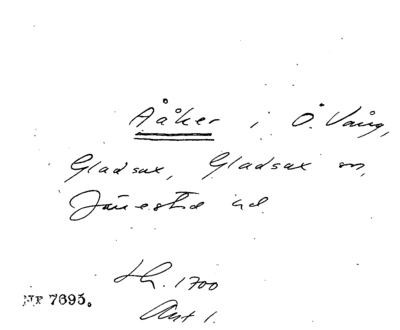 Aåker i Ö. Vång,
Gladsax, Gladsax sn,
Järrestad hd.
Lh. 1700
Ant 1.
NF 7695.